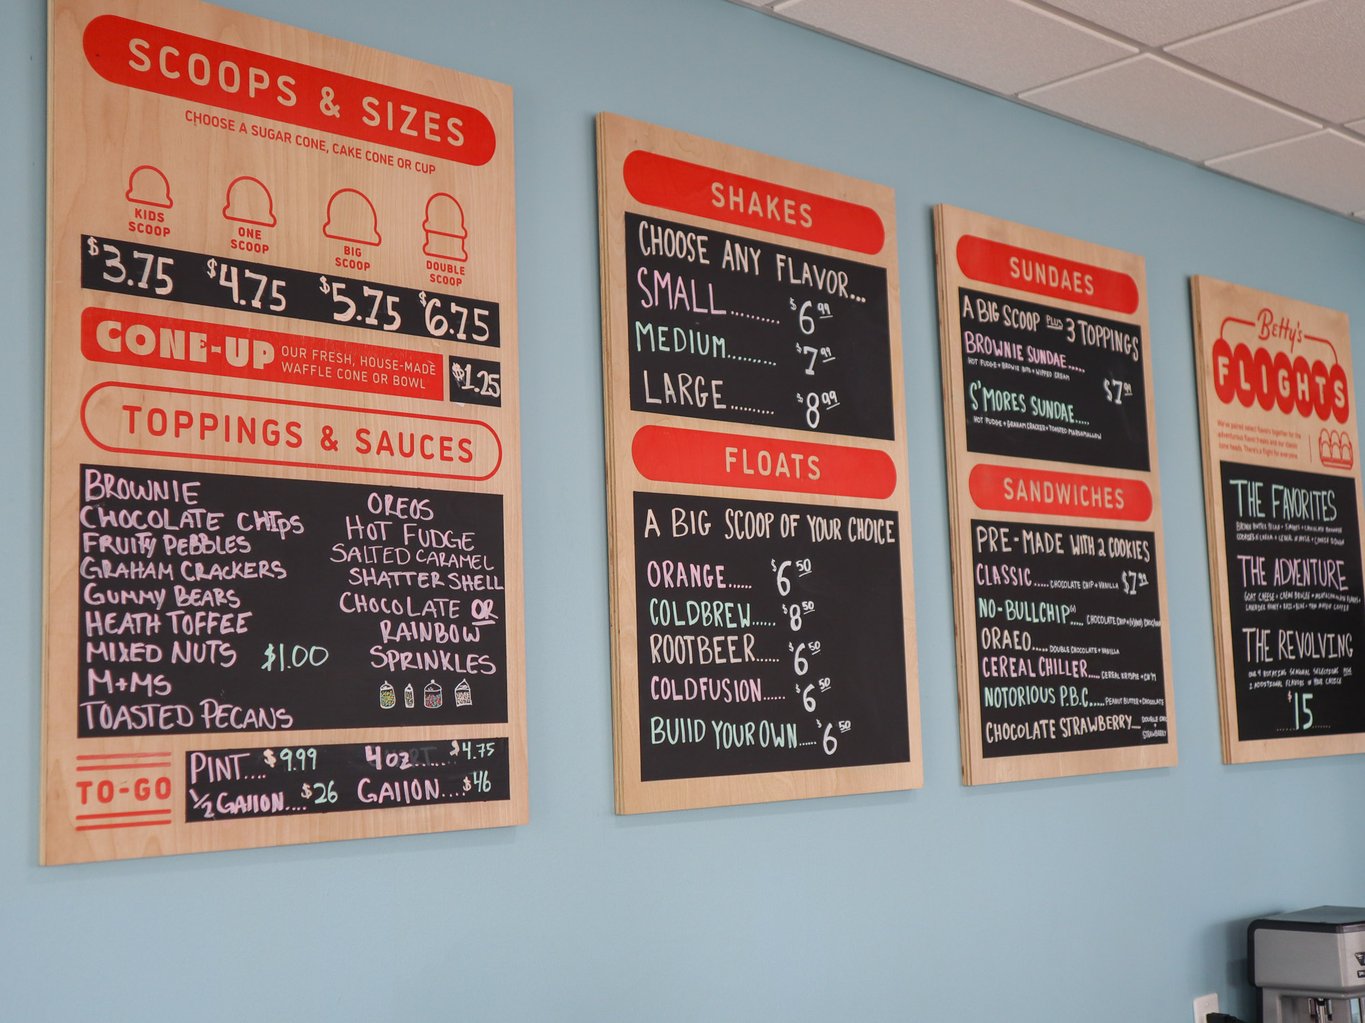 SCOOPS & SIZES
CHOOSE A SUGAR CONE, CAKE CONE OR CUP
KIDS SCOOP
ONE SCOOP
BIG SCOOP
DOUBLE SCOOP
$3.75 $4.75 $5.75 $6.75
CONE-UP
OUR FRESH, HOUSE-MADE
WAFFLE CONE OR BOWL
$1.25
TOPPINGS & SAUCES
BROWNIE
CHOCOLATE CHIPS
FRUITY PEBBLES
GRAHAM CRACKERS
GUMMY BEARS
HEATH TOFFEE
MIXED NUTS $1.00
M+MS
TOASTED PECANS
OREOS
HOT FUDGE
SALTED CARAMEL
SHATTER SHELL
CHOCOLATE OR
RAINBOW
SPRINKLES
TO-GO
PINT.... $9.99
1/2 GALLON.... $26
4oz........ $4.75
GALLON.... $46
SHAKES
CHOOSE ANY FLAVOR...
SMALL......... $6.99
MEDIUM......... $7.99
LARGE......... $8.99
FLOATS
A BIG SCOOP OF YOUR CHOICE
ORANGE..... $6.50
COLDBREW..... $8.50
ROOTBEER..... $6.50
COLDFUSION..... $6.50
BUILD YOUR OWN..... $6.50
SUNDAES
A BIG SCOOP PLUS 3 TOPPINGS
BROWNIE SUNDAE.....
HOT FUDGE + BROWNIE BITS + WIPPED CREAM
$7.99
S'MORES SUNDAE.....
HOT FUDGE + GRAHAM CRACKER + TOASTED MARSHMALLOW
SANDWICHES
PRE-MADE WITH 2 COOKIES
CLASSIC..... CHOCOLATE CHIP + VANILLA $7.99
NO-BULLCHIP..... CHOCOLATE CHIP
ORAEO..... DOUBLE CHOCOLATE + VANILLA
CEREAL CHILLER..... CEREAL KRISPIE
NOTORIOUS P.B.C..... PEANUT BUTTER + CHOCOLATE
CHOCOLATE STRAWBERRY DOUBLE
STRAWBERRY
Betty's
FLIGHTS
We've paired select flavors together for the
adventurous flavor treats and our classic
cone heads. There's a flight for everyone.
THE FAVORITES
THE ADVENTURE
THE REVOLVING
$15